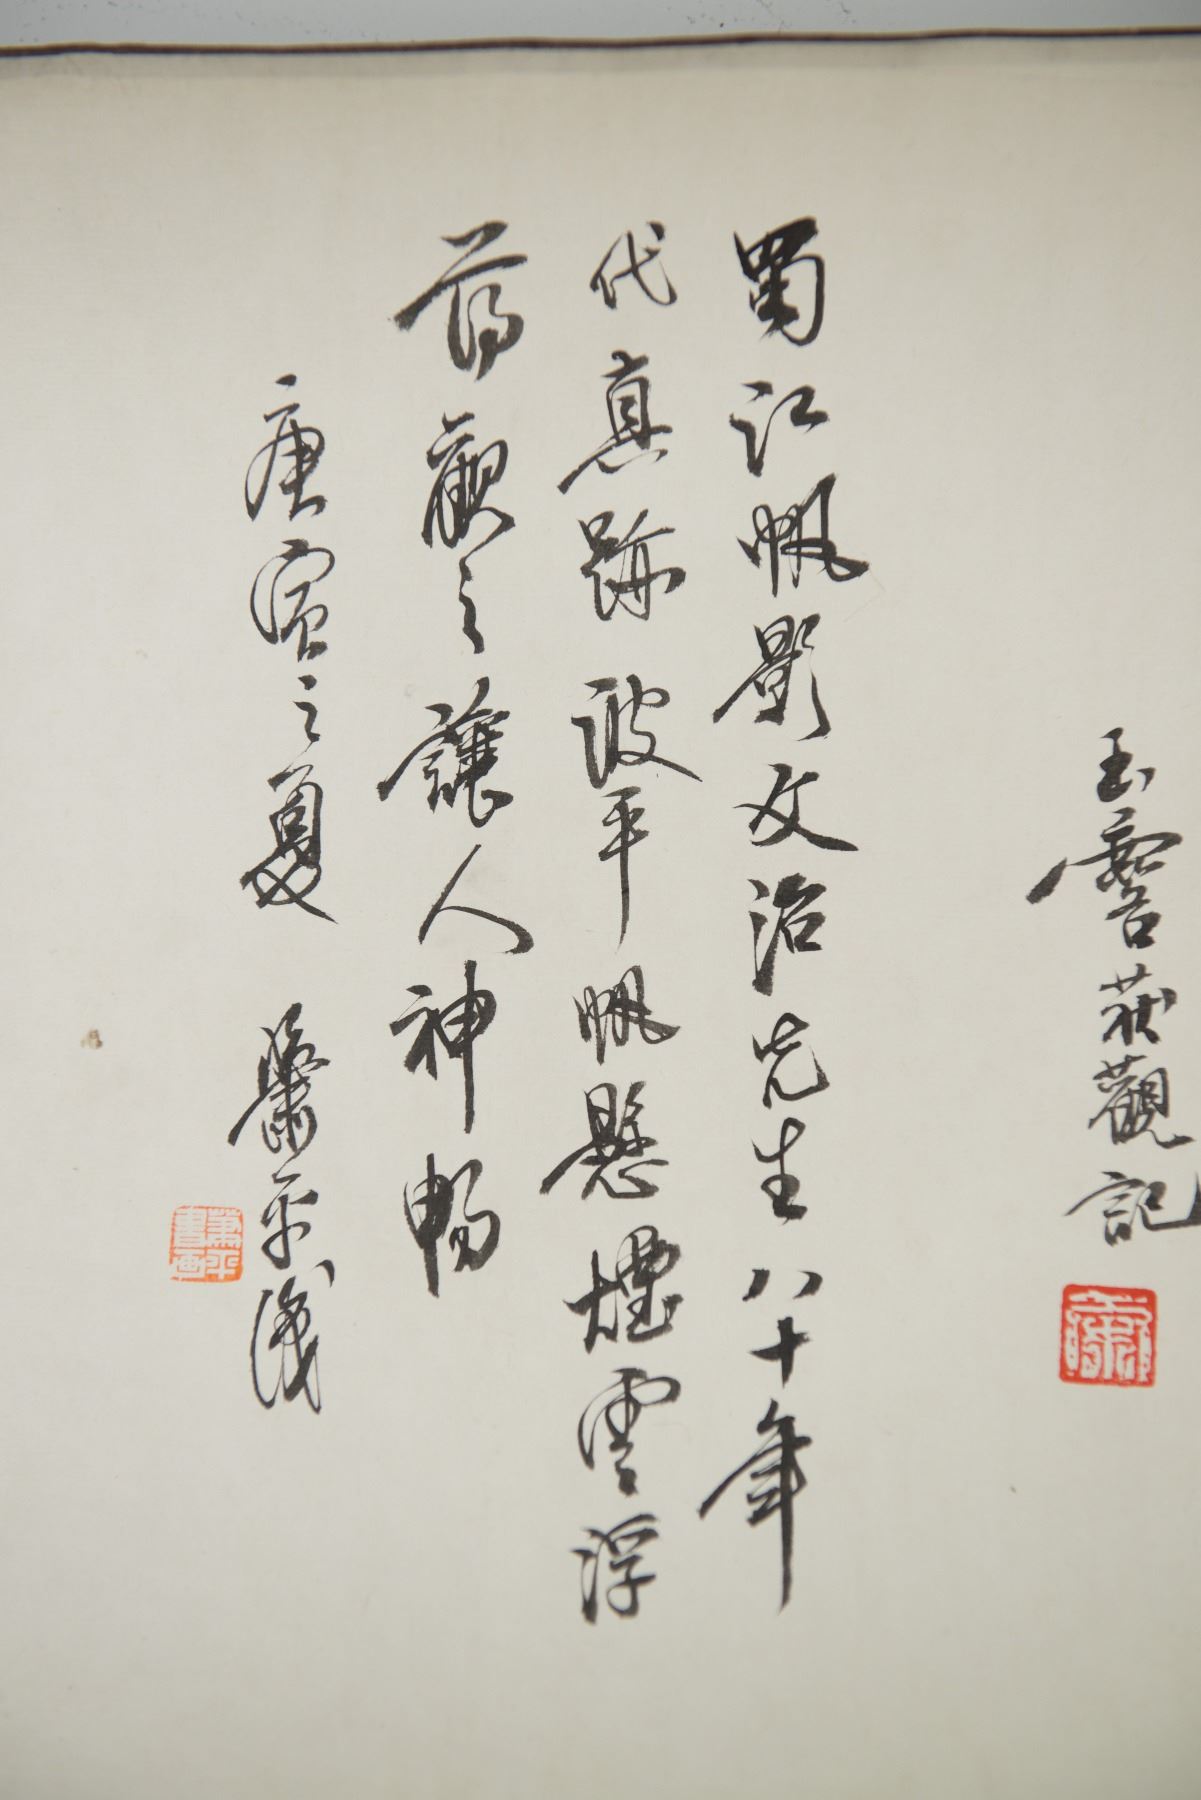 玉霄获觀記
蜀江帆影文治先生八十年
代真跡波平帆懸煙雲浮
蕩觀之讓人神暢
庚寅之夏 蕭平識
蕭平書画